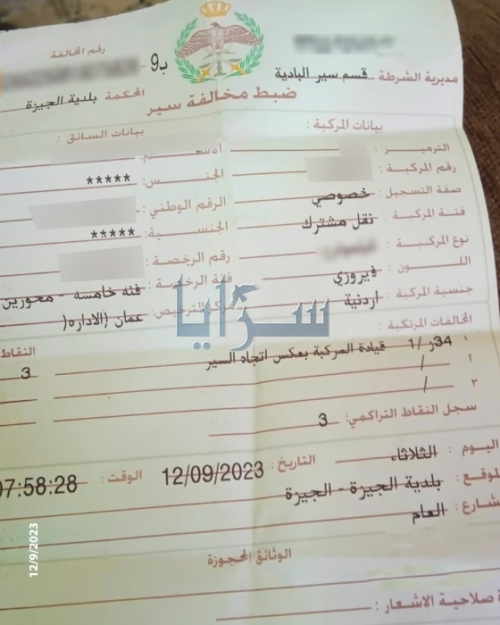 رقم المخالفة
ب9-
مديرية الشرطة قسم سير البادية
المحكمة بلدية الجيزة
ضبط مخالفة سير
بيانات المركبة :
الترميز :
رقم المركبة :
صفة التسجيل : خصوصي
فئة المركبة : نقل مشترك
نوع المركبة :
اللون : فيروزي
جنسية المركبة : اردنية
بيانات السائق :
الاسم :
الجنس : *****
الرقم الوطني :
الجنسية : *****
رقم الرخصة :
فئة الرخصة : فئه خامسه - محورين
مركز الترخيص : عمان (الاداره(
سرايا
المخالفات المرتكبة : النقاط
١ 34ر /1 قيادة المركبة بعكس اتجاه السير 3
٢ /
٣ /
سجل النقاط التراكمي : 3
اليوم : الثلاثاء التاريخ : 12/09/2023 الوقت : 07:58:28
الموقع : بلدية الجيزة - الجيزة
شارع : العام
الوثائق المحجوزة
ة صلاحية الاشعار :
12/9/2023